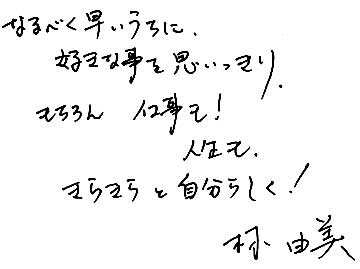 なるべく早いうちに、
好きな事を思いっきり、
もちろん 仕事も!
人生も、
きらきらと自分らしく!
林 由美